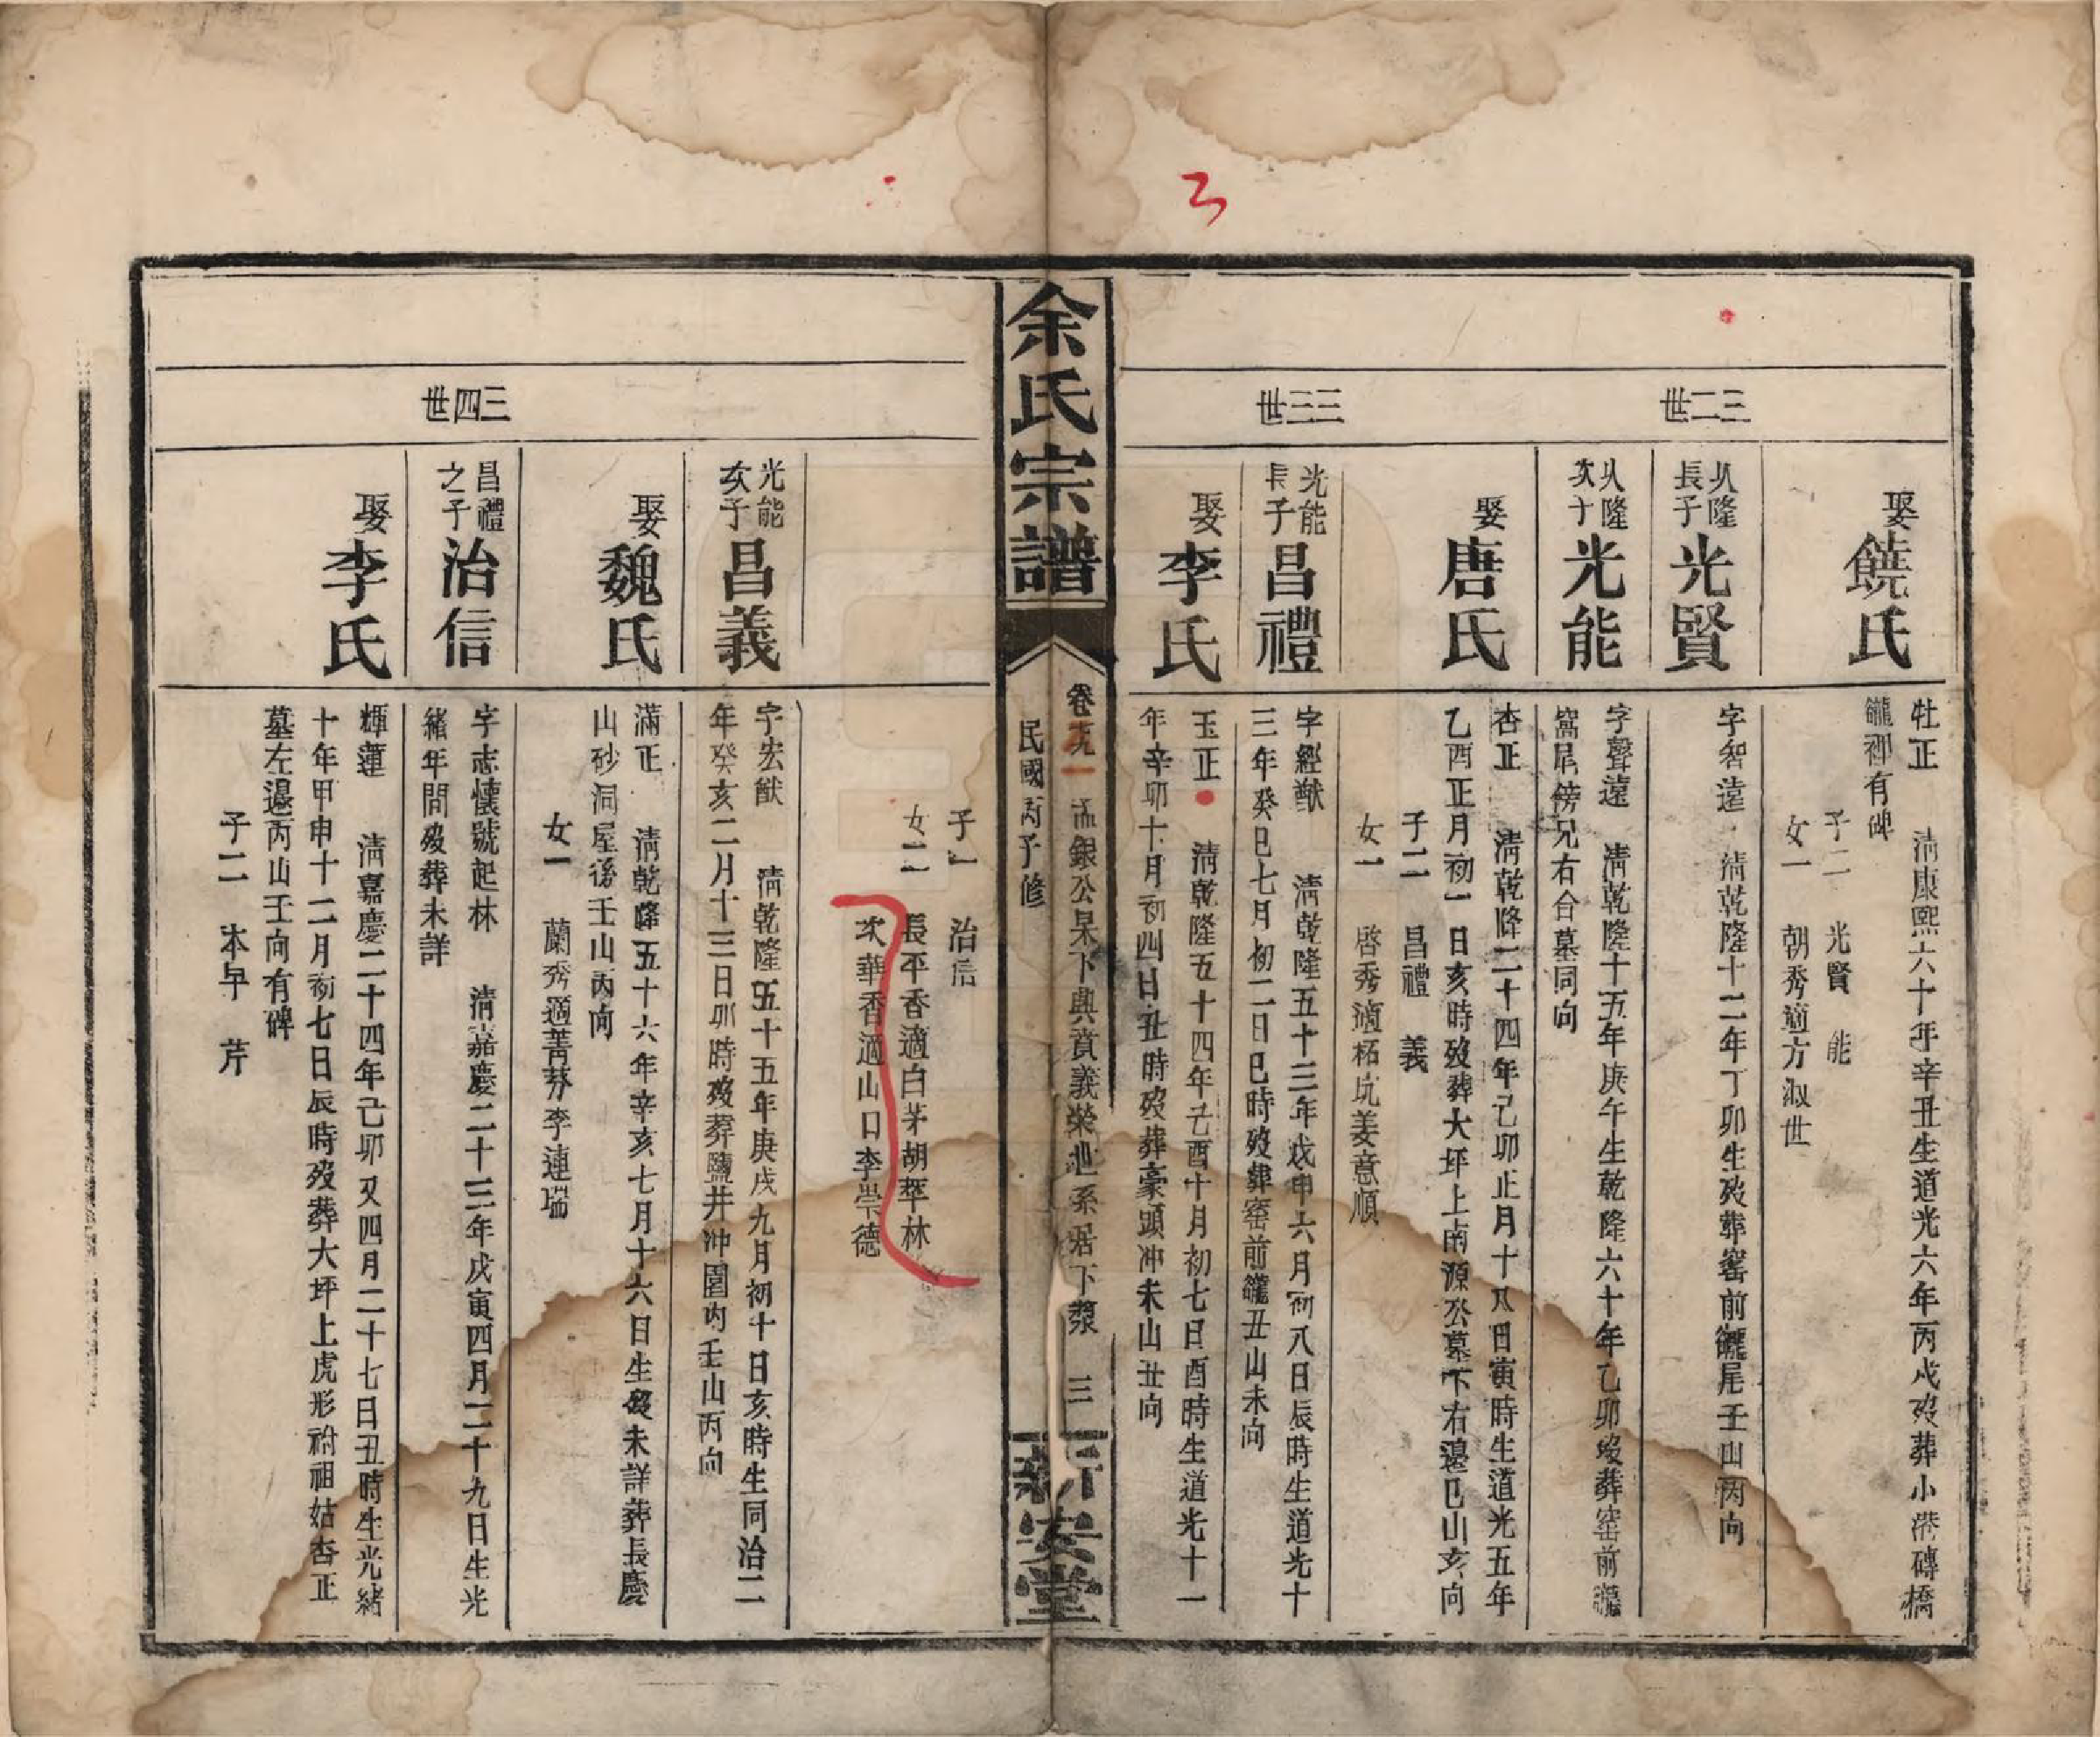 三二世
娶
饒氏
牡正　清康熙六十年辛丑生道光六年丙戌歿葬小港磚橋
有碑
子二　光賢　能
女一　朝秀適方淑世
久隆
長子
光賢
字智遠　清乾隆十二年丁卯生歿葬窰前龓尾壬山丙向
久隆
次子
光能
字聲遠　清乾隆十五年庚午生乾隆六十年乙卯歿葬窰前龓
窩凥傍兄右合墓同向
娶
唐氏
杏正　清乾隆二十四年己卯正月十八日寅時生道光五年
乙酉正月初一日亥時歿葬大坪上南源公墓下右邊巳山亥向
子二　昌禮　義
女一　啓秀適柘坑姜意順
三三世
光能
長子
昌禮
字經猷　清乾隆五十三年戊申六月初八日辰時生道光十
三年癸巳七月初二日巳時歿葬窰前龓丑山未向
娶
李氏
玉正　清乾隆五十四年己酉十月初七日酉時生道光十一
年辛卯十月初四日丑時歿葬豪頭冲未山丑向
3
余氏宗譜
卷 一　孟銀公杲下典賁義榮世系居下漿　三
民國丙子修
新安堂
子一　治信
女二　長平香適白茅胡翠林
次華香適山口李崇德
光能
次子
昌義
字宏猷　清乾隆五十五年庚戌九月初十日亥時生同治二
年癸亥二月十三日卯時歿葬鹽井冲園內壬山丙向
娶
魏氏
滿正　清乾隆五十六年辛亥七月十六日生歿未詳葬長慶
山砂洞屋後壬山丙向
女一　蘭秀適菁芬李連瑞
三四世
昌禮
之子
治信
字志懷號起林　清嘉慶二十三年戊寅四月二十九日生光
緒年間歿葬未詳
娶
李氏
輝蓮　清嘉慶二十四年己卯又四月二十七日丑時生光緒
十年甲申十二月初七日辰時歿葬大坪上虎形祔祖姑杏正
墓左邊丙山壬向有碑
子二　本早　芹